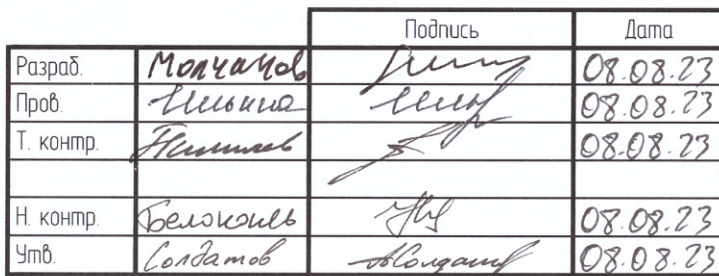 Подпись Дата
Разраб. Молчанов 08.08.23
Пров. Ильина 08.08.23
Т. контр. 08.08.23
Н. контр. 08.08.23
Утв. Солдатов 08.08.23